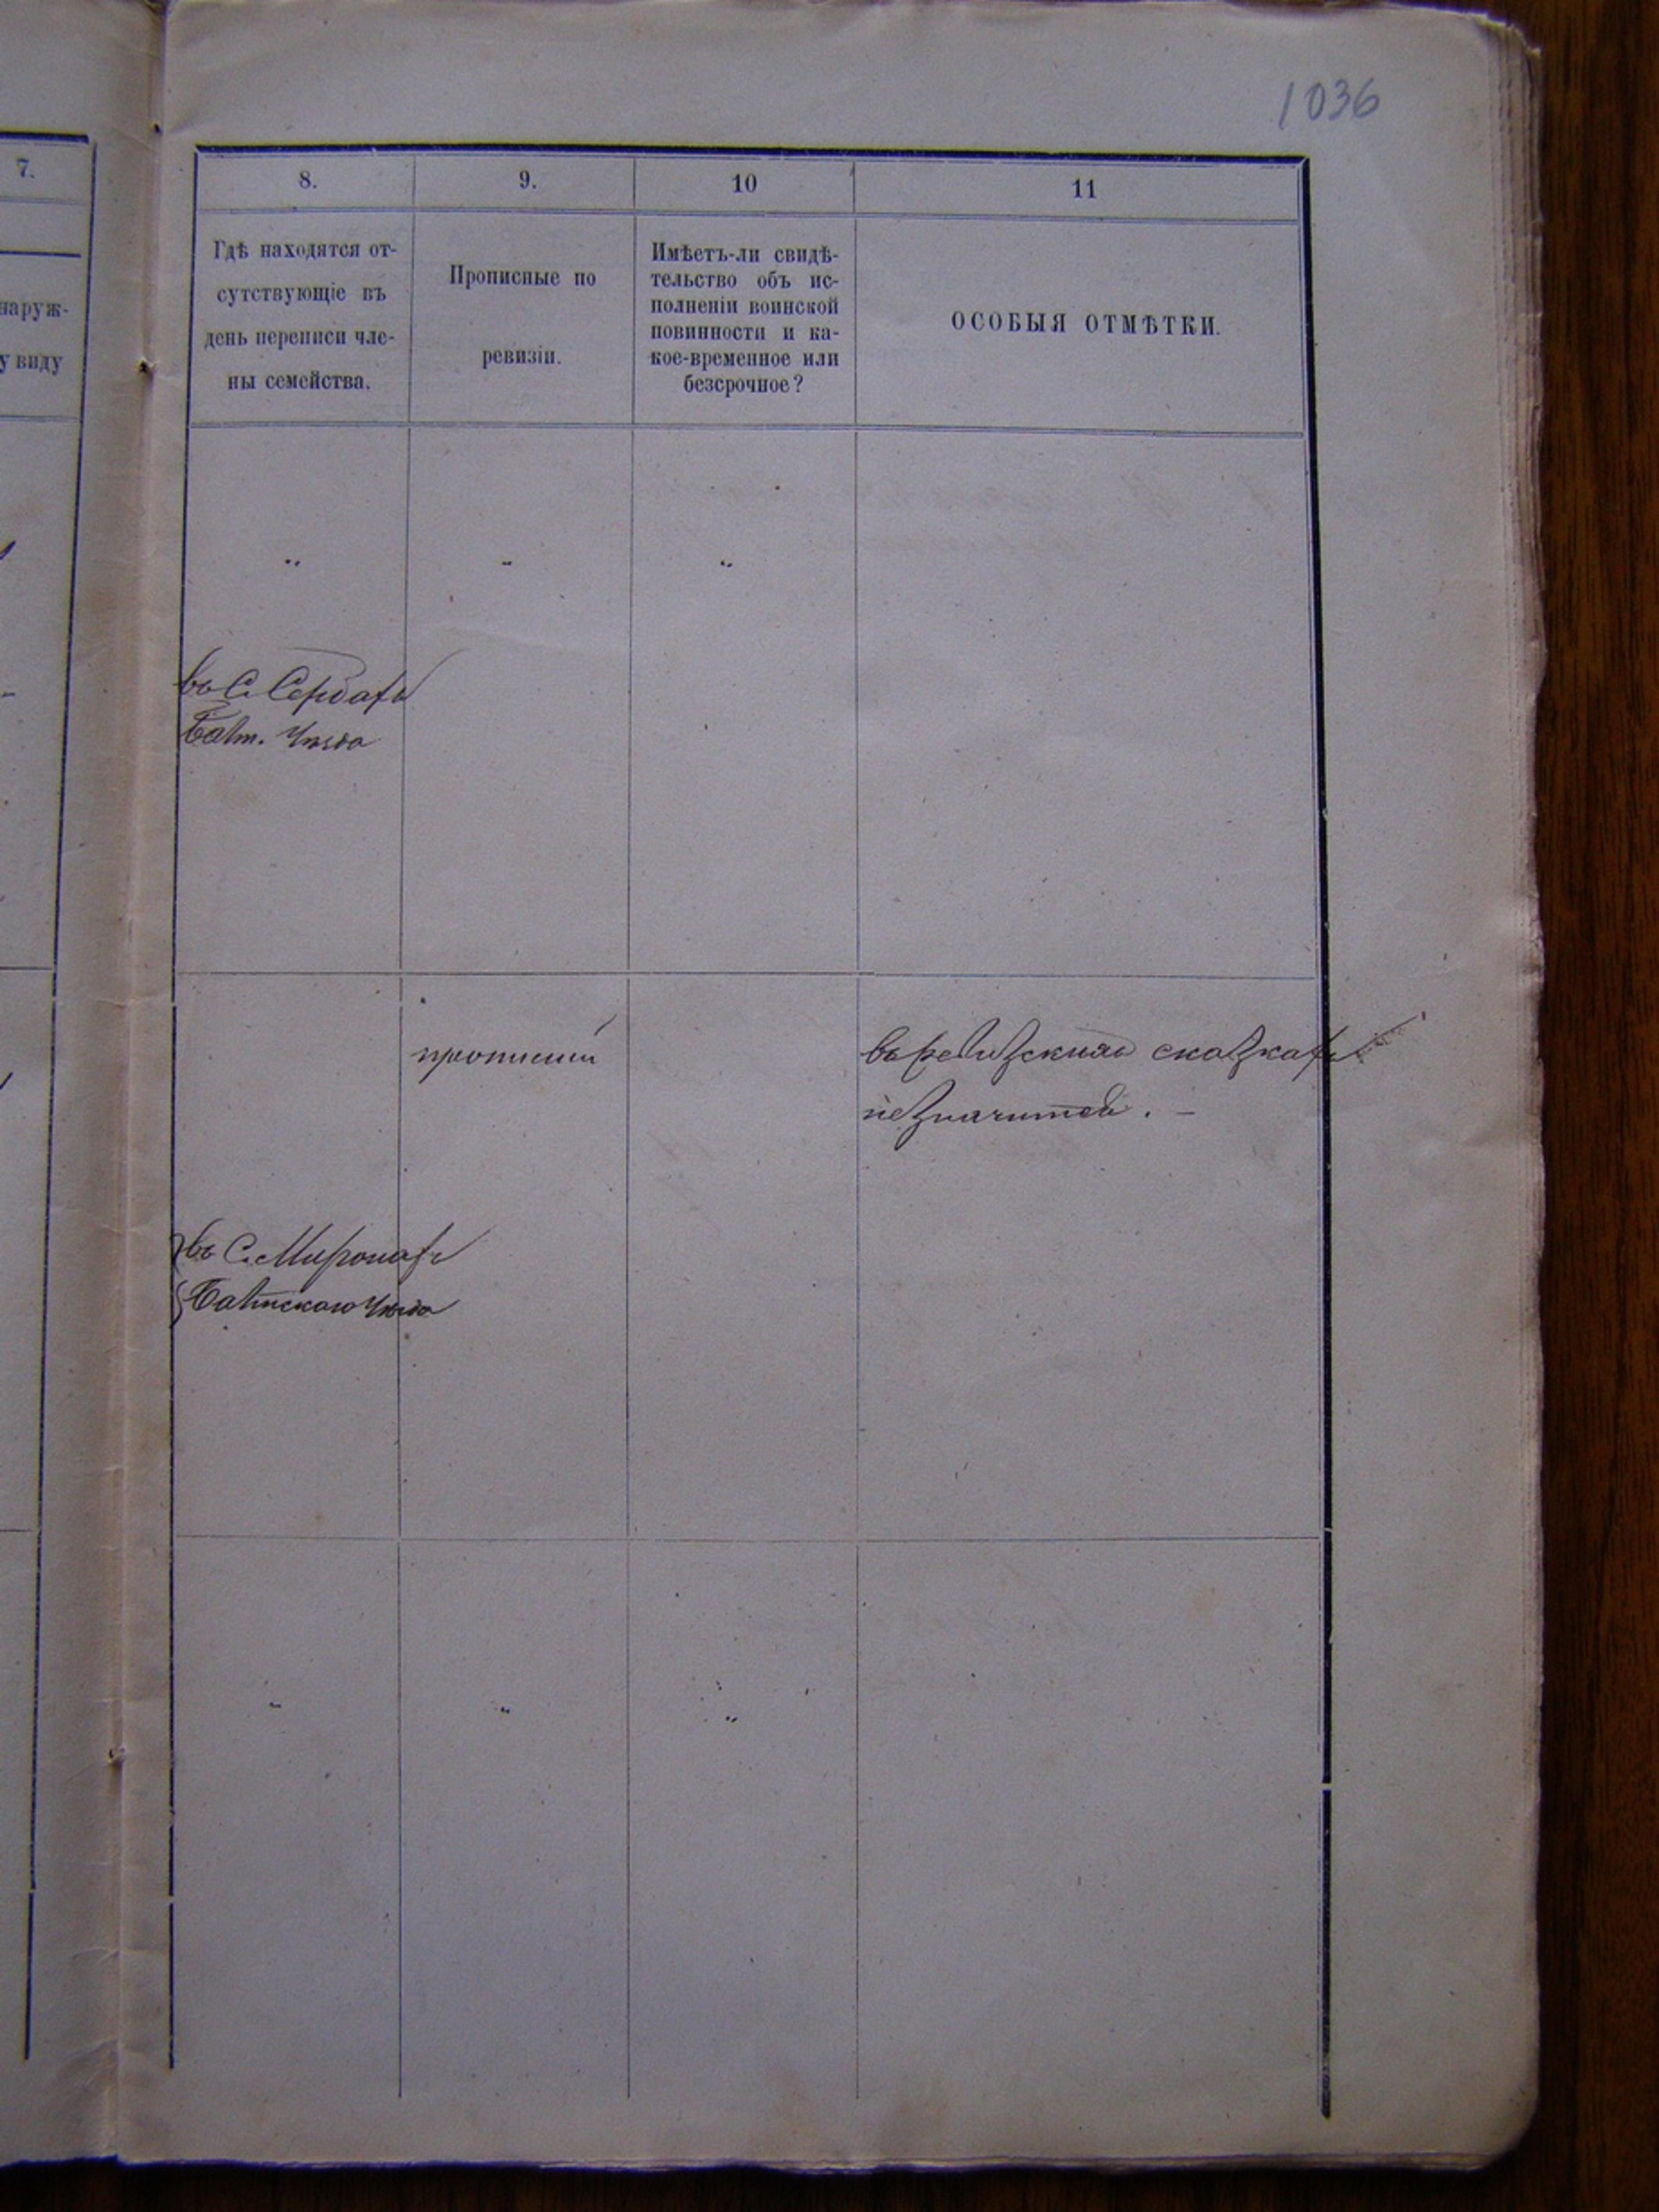 1036
7.
8.
9.
10
11
наруж-
у виду
Гдѣ находятся от-
сутствующіе въ
день переписи чле-
ны семейства.
Прописные по
ревизіи.
Имѣетъ-ли свидѣ-
тельство объ ис-
полненіи воинской
повинности и ка-
кое-временное или
безсрочное?
ОСОБЫЯ ОТМѢТКИ.
въ С. Сербахъ
Балт. Уѣзда
прописной
въ ревизскихъ сказкахъ
не значится. —
въ С. Миронахъ
Балтскаго Уѣзда